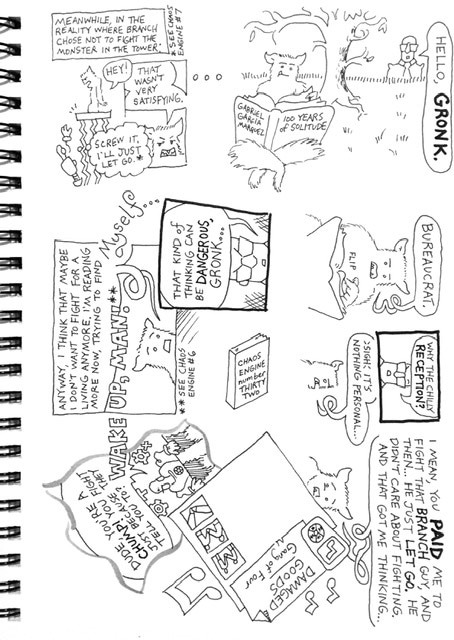 HELLO,
GRONK.
GABRIEL
GARCIA
MARQUEZ
100 YEARS
OF SOLITUDE
MEANWHILE, IN THE
REALITY WHERE BRANCH
CHOSE NOT TO FIGHT THE
MONSTER IN THE TOWER.*
*SEE CHAOS
ENGINE #7
HEY!
THAT
WASN'T
VERY
SATISFYING.
SCREW IT,
I'LL JUST
LET GO.*
BUREAUCRAT.
FLIP
WHY THE CHILLY
RECEPTION?
>SIGH< IT'S
NOTHING PERSONAL...
I MEAN, YOU PAID ME TO
FIGHT THAT BRANCH GUY, AND
THEN... HE JUST LET GO. HE
DIDN'T CARE ABOUT FIGHTING.
AND THAT GOT ME THINKING...
THAT KIND OF
THINKING CAN
BE DANGEROUS,
GRONK...
CHAOS
ENGINE
number
THIRTY
TWO
DAMAGED
GOODS
Gang of Four
ANYWAY, I THINK THAT MAYBE
I DON'T WANT TO FIGHT FOR A
LIVING ANYMORE. I'M READING
MORE NOW, TRYING TO FIND
Myself...
WAKE UP, MAN!**
**SEE CHAOS
ENGINE #6
DUDE, YOU'RE A
CHUMP! YOU FIGHT
JUST BECAUSE THEY
TELL YOU TO?